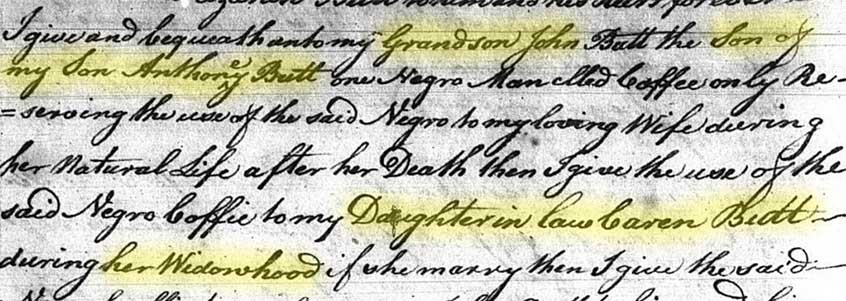 his heirs forever
I give and bequeath unto my Grandson John Butt the Son of
my Son Anthoney Butt one Negro Man clled Coffee only Re-
=serving the use of the said Negro to my loving Wife during
her Natural Life after her Death then I give the use of the
said Negro Coffie to my Daughter in law Caren Butt
during her Widowhood if she marry then I give the said